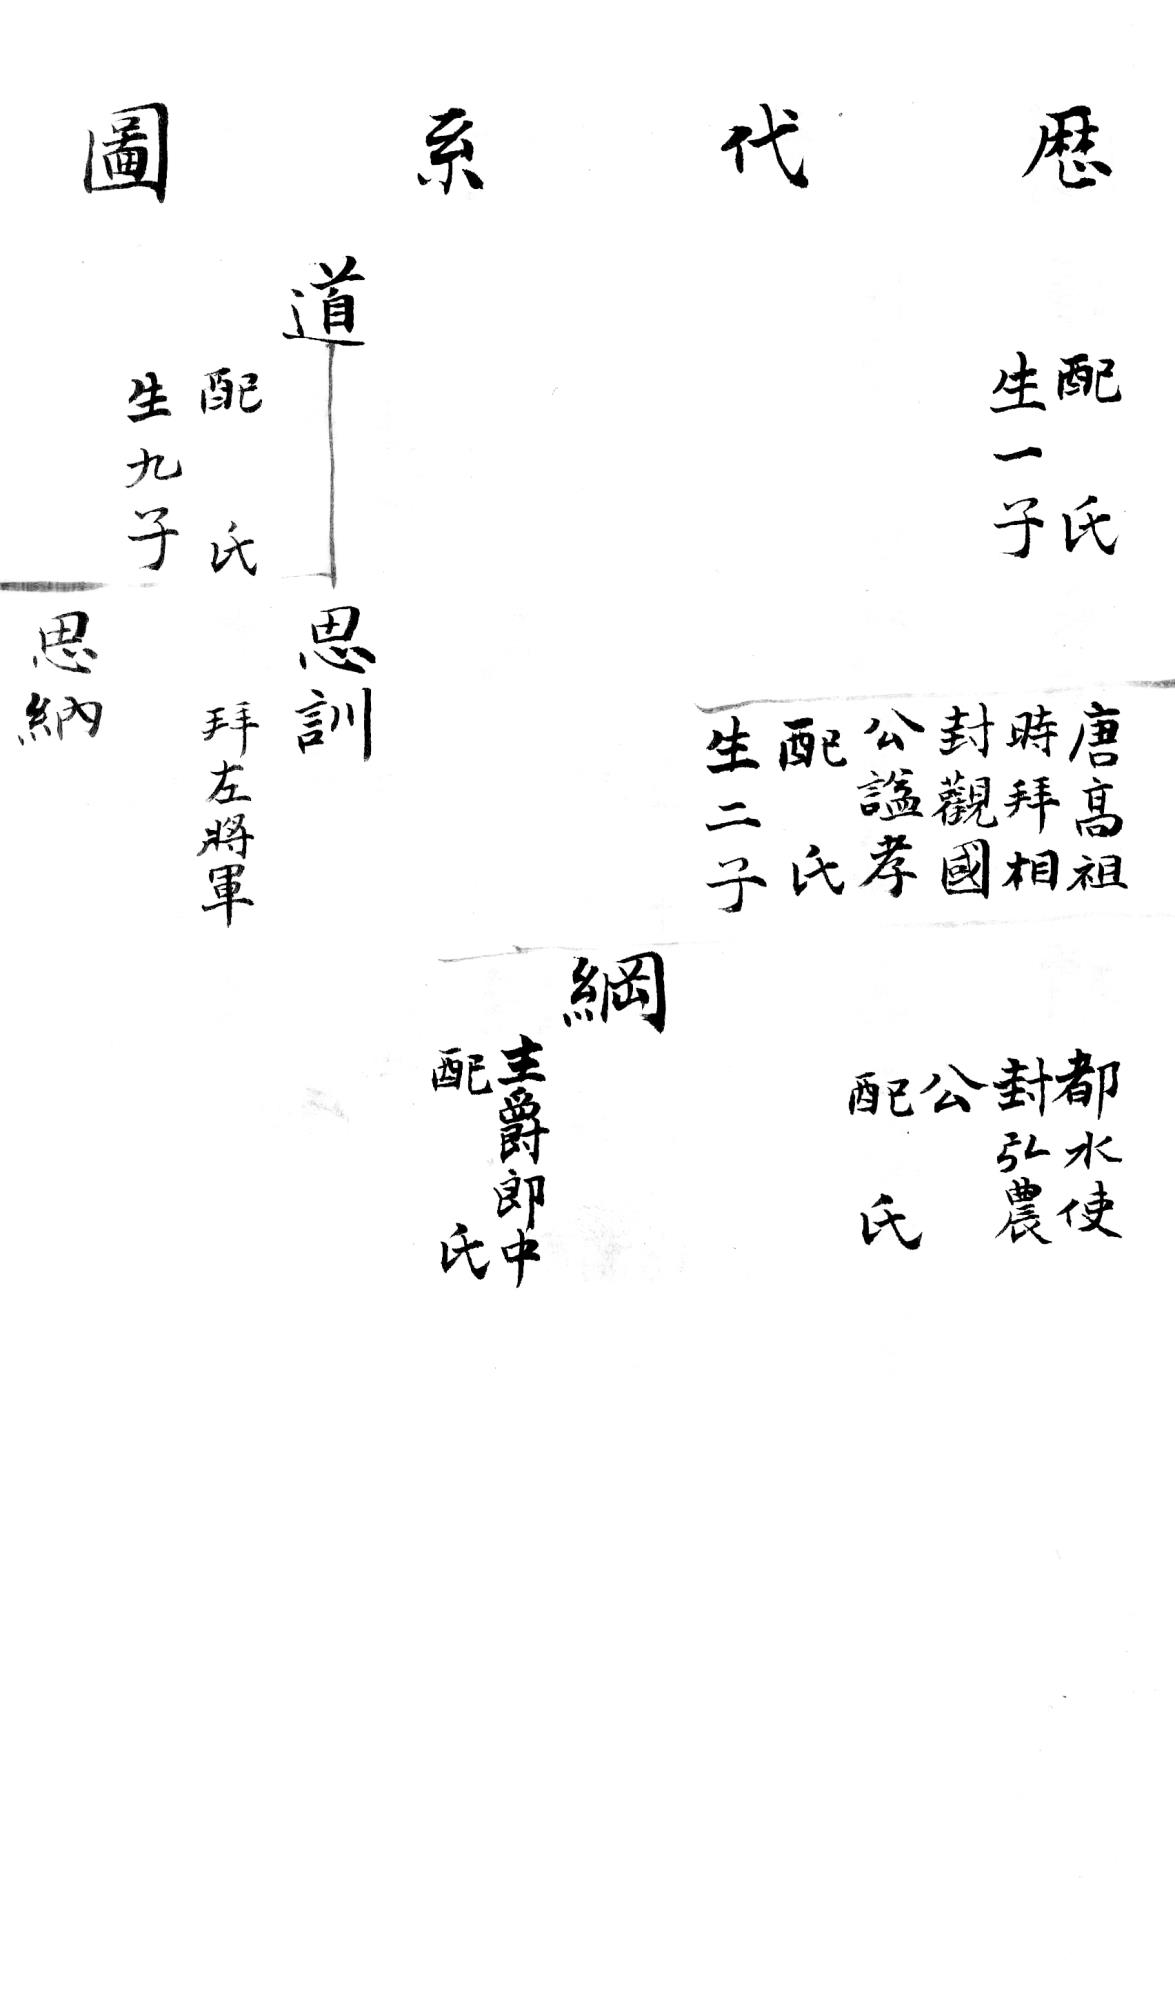 歴代系圖
配氏
生一子
道
配氏
生九子
思訓
拜左將軍
思納
唐高祖
時拜相
封觀國
公謚孝
配氏
生二子
都水使
封弘農
公
配氏
綱
主爵郎中
配氏